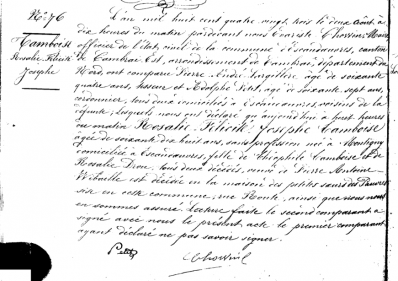 N° 76
Camboise
Rosalie Félicité
Josephe
L'an mil huit cent quatre vingt trois le deux Août, à
dix heures du matin pardevant nous Evariste Maire
officier de l'état civil de la commune d'Escaudœuvres, canton
de Cambrai Est, arrondissement de Cambrai, département du
Nord, ont comparu Pierre André âgé de soixante
quatre ans, et Adolphe Petit, âgé de soixante sept ans,
cordonnier, tous deux domiciliés à Escaudœuvres, voisins de la
défunte, lesquels nous ont déclaré qu'aujourd'hui à huit heures
du matin Rosalie Félicité Josephe Camboise
âgée de soixante dix huit ans, sans profession née à Montigny
domiciliée à Escaudœuvres, fille de Théophile Camboise et de
Rosalie tous deux décédés, veuve de Pierre Antoine
est décédée en la maison des petites sœurs des Pauvres
sise en cette commune, rue ainsi que nous nous
en sommes assuré. Lecture faite le second comparant a
signé avec nous le présent acte le premier comparant
ayant déclaré ne pas savoir signer.
Petit